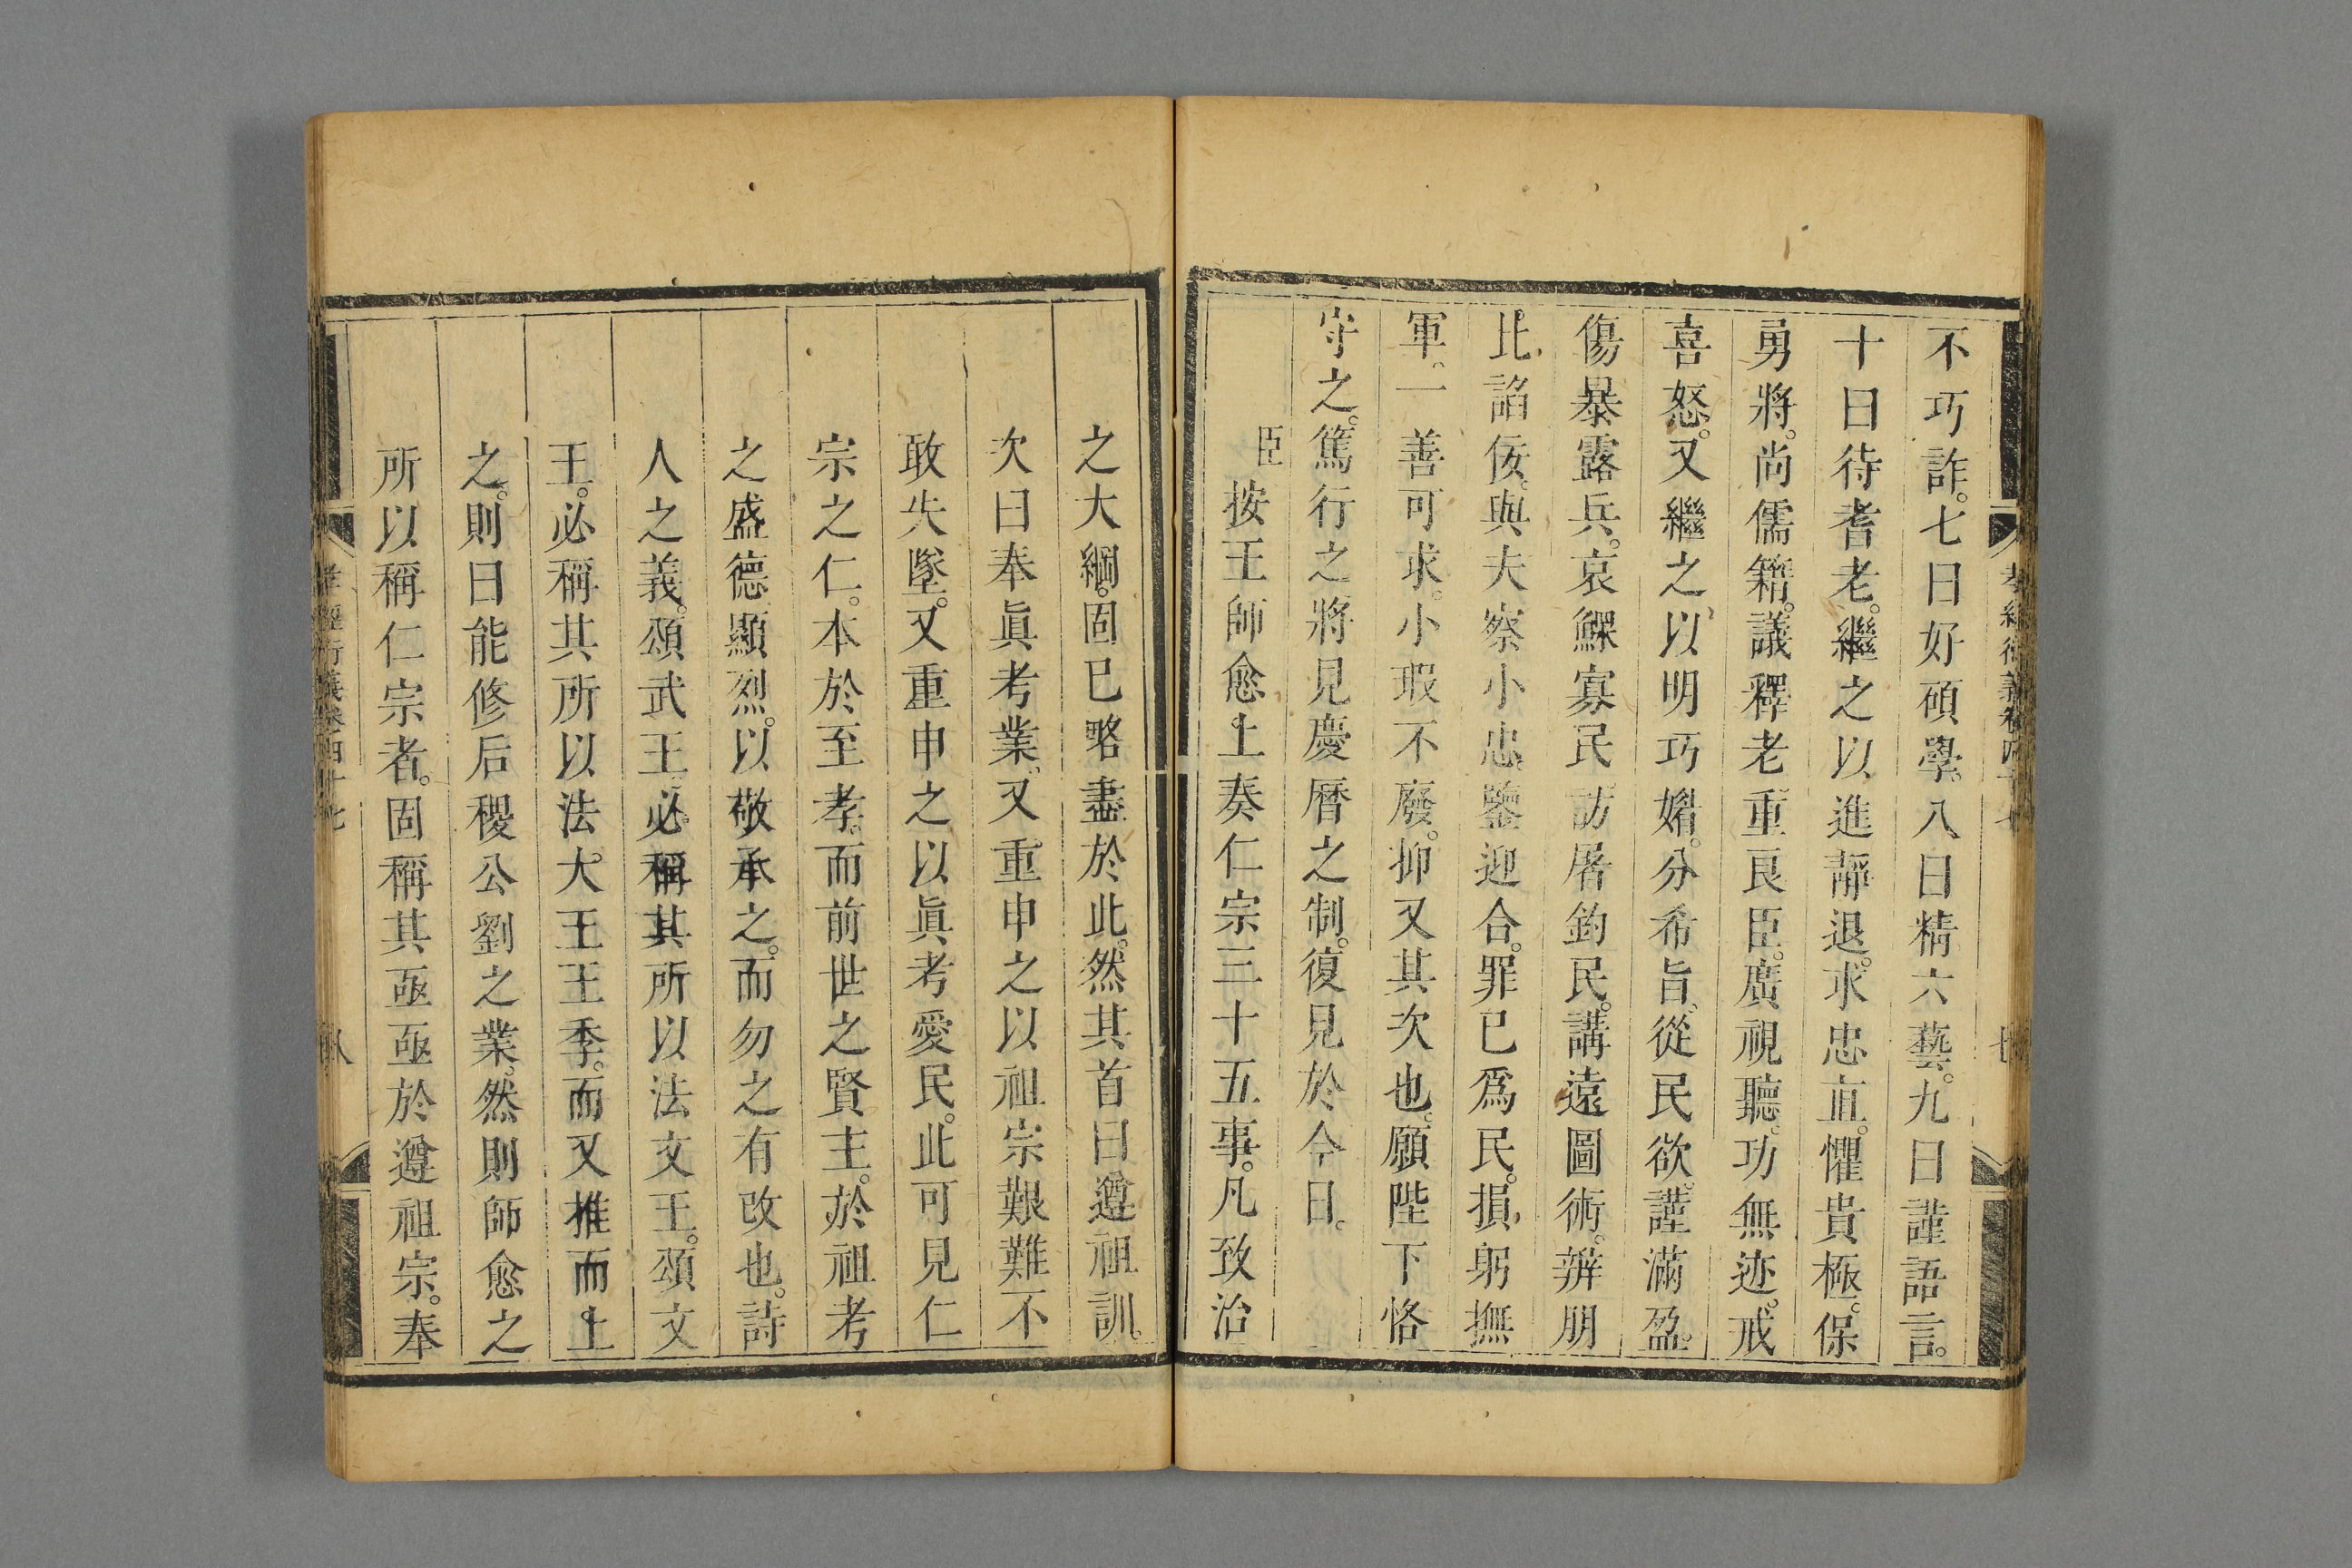 不巧詐。七曰好碩學。八曰精六藝。九曰謹語言。
十曰待耆老。繼之以進靜退。求忠直。懼貴極。保
勇將。尚儒籍。議釋老重良臣。廣視聽。功無迹。戒
喜怒。又繼之以明巧媢。分希旨。從民欲。謹滿盈。
傷暴露兵。哀鰥寡民訪屠釣民。講遠圖術。辨朋
比。諂佞。與夫察小忠。鑒迎合。罪已爲民。損躬撫
軍。一善可求。小瑕不廢。抑又其次也。願陛下恪
守之。篤行之將見慶曆之制。復見於今日。
臣按王師愈。上奏仁宗三十五事。凡致治
之大綱。固已略盡於此。然其首曰遵祖訓。
次曰奉眞考業。又重申之以祖宗艱難不
敢失墜。又重申之以眞考愛民。此可見仁
宗之仁。本於至孝。而前世之賢主。於祖考
之盛德顯烈。以敬承之。而勿之有改也。詩
人之義。頌武王。必稱其所以法文王。頌文
王。必稱其所以法大王王季。而又推而上
之。則曰能修后稷公劉之業。然則師愈之
所以稱仁宗者。固稱其亟亟於遵祖宗。奉
孝經衍義卷四十七
八